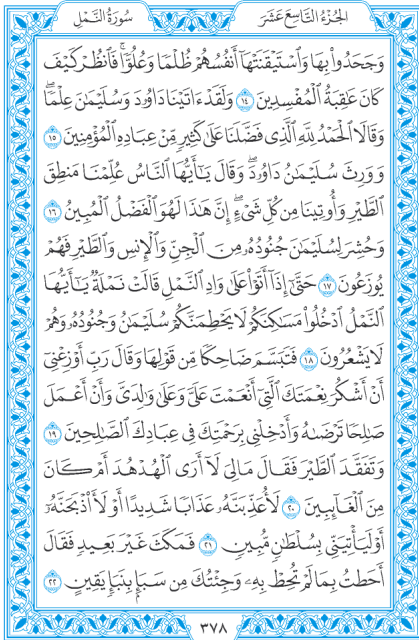 الجُزْءُ التَّاسِعَ عَشَرَ
سُورَةُ النَّمْلِ
وَجَحَدُوا۟ بِهَا وَٱسْتَيْقَنَتْهَآ أَنفُسُهُمْ ظُلْمًا وَعُلُوًّا ۚ فَٱنظُرْ كَيْفَ
كَانَ عَٰقِبَةُ ٱلْمُفْسِدِينَ ١٤ وَلَقَدْ ءَاتَيْنَا دَاوُۥدَ وَسُلَيْمَٰنَ عِلْمًا ۖ
وَقَالَا ٱلْحَمْدُ لِلَّهِ ٱلَّذِى فَضَّلَنَا عَلَىٰ كَثِيرٍ مِّنْ عِبَادِهِ ٱلْمُؤْمِنِينَ ١٥
وَوَرِثَ سُلَيْمَٰنُ دَاوُۥدَ ۖ وَقَالَ يَٰٓأَيُّهَا ٱلنَّاسُ عُلِّمْنَا مَنطِقَ
ٱلطَّيْرِ وَأُوتِينَا مِن كُلِّ شَىْءٍ ۖ إِنَّ هَٰذَا لَهُوَ ٱلْفَضْلُ ٱلْمُبِينُ ١٦
وَحُشِرَ لِسُلَيْمَٰنَ جُنُودُهُۥ مِنَ ٱلْجِنِّ وَٱلْإِنسِ وَٱلطَّيْرِ فَهُمْ
يُوزَعُونَ ١٧ حَتَّىٰٓ إِذَآ أَتَوْا۟ عَلَىٰ وَادِ ٱلنَّمْلِ قَالَتْ نَمْلَةٌ يَٰٓأَيُّهَا
ٱلنَّمْلُ ٱدْخُلُوا۟ مَسَٰكِنَكُمْ لَا يَحْطِمَنَّكُمْ سُلَيْمَٰنُ وَجُنُودُهُۥ وَهُمْ
لَا يَشْعُرُونَ ١٨ فَتَبَسَّمَ ضَاحِكًا مِّن قَوْلِهَا وَقَالَ رَبِّ أَوْزِعْنِىٓ
أَنْ أَشْكُرَ نِعْمَتَكَ ٱلَّتِىٓ أَنْعَمْتَ عَلَىَّ وَعَلَىٰ وَٰلِدَىَّ وَأَنْ أَعْمَلَ
صَٰلِحًا تَرْضَىٰهُ وَأَدْخِلْنِى بِرَحْمَتِكَ فِى عِبَادِكَ ٱلصَّٰلِحِينَ ١٩
وَتَفَقَّدَ ٱلطَّيْرَ فَقَالَ مَالِىَ لَآ أَرَى ٱلْهُدْهُدَ أَمْ كَانَ
مِنَ ٱلْغَآئِبِينَ ٢٠ لَأُعَذِّبَنَّهُۥ عَذَابًا شَدِيدًا أَوْ لَأَا۟ذْبَحَنَّهُۥٓ
أَوْ لَيَأْتِيَنِّى بِسُلْطَٰنٍ مُّبِينٍ ٢١ فَمَكَثَ غَيْرَ بَعِيدٍ فَقَالَ
أَحَطتُ بِمَا لَمْ تُحِطْ بِهِۦ وَجِئْتُكَ مِن سَبَإٍۭ بِنَبَإٍ يَقِينٍ ٢٢
٣٧٨